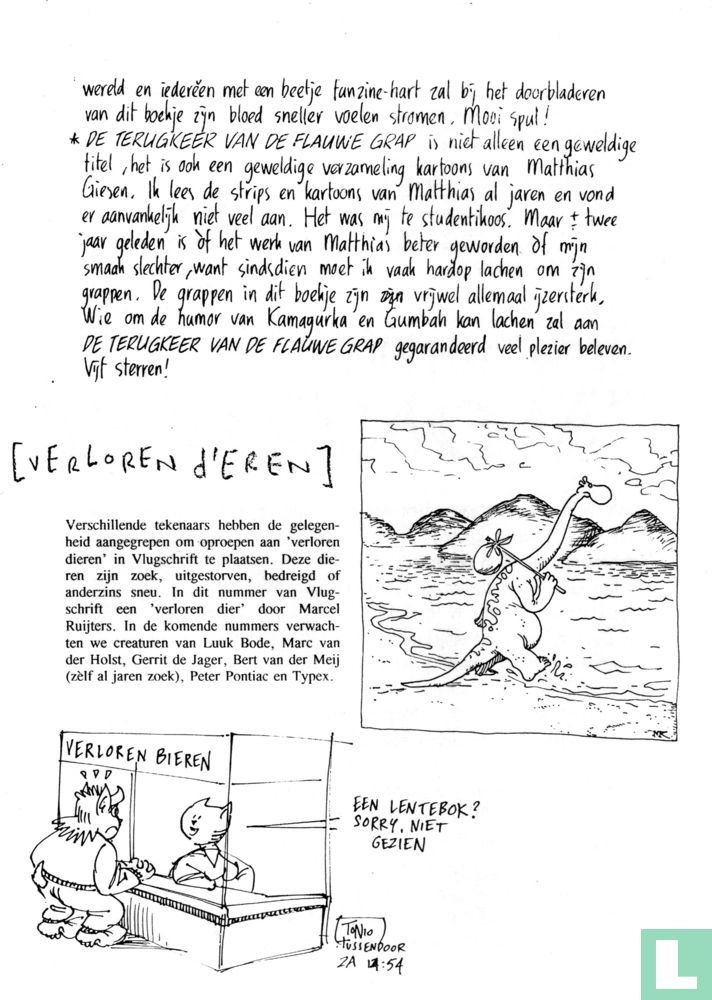 wereld en iedereen met een beetje fanzine-hart zal bij het doorbladeren
van dit boekje zijn bloed sneller voelen stromen. Mooi spul!
* DE TERUGKEER VAN DE FLAUWE GRAP is niet alleen een geweldige
titel, het is ook een geweldige verzameling kartoons van Matthias
Giesen. Ik lees de strips en kartoons van Matthias al jaren en vond
er aanvankelijk niet veel aan. Het was mij te studentikoos. Maar ± twee
jaar geleden is òf het werk van Matthias beter geworden òf mijn
smaak slechter, want sindsdien moet ik vaak hardop lachen om zijn
grappen. De grappen in dit boekje zijn vrijwel allemaal ijzersterk.
Wie om de humor van Kamagurka en Gumbah kan lachen zal aan
DE TERUGKEER VAN DE FLAUWE GRAP gegarandeerd veel plezier beleven.
Vijf sterren!
[VERLOREN d'EREN]
Verschillende tekenaars hebben de gelegen-
heid aangegrepen om oproepen aan 'verloren
dieren' in Vlugschrift te plaatsen. Deze die-
ren zijn zoek, uitgestorven, bedreigd of
anderzins sneu. In dit nummer van Vlug-
schrift een 'verloren dier' door Marcel
Ruijters. In de komende nummers verwach-
ten we creaturen van Luuk Bode, Marc van
der Holst, Gerrit de Jager, Bert van der Meij
(zèlf al jaren zoek), Peter Pontiac en Typex.
MR
VERLOREN BIEREN
EEN LENTEBOK?
SORRY, NIET
GEZIEN
TONIO
TUSSENDOOR
L